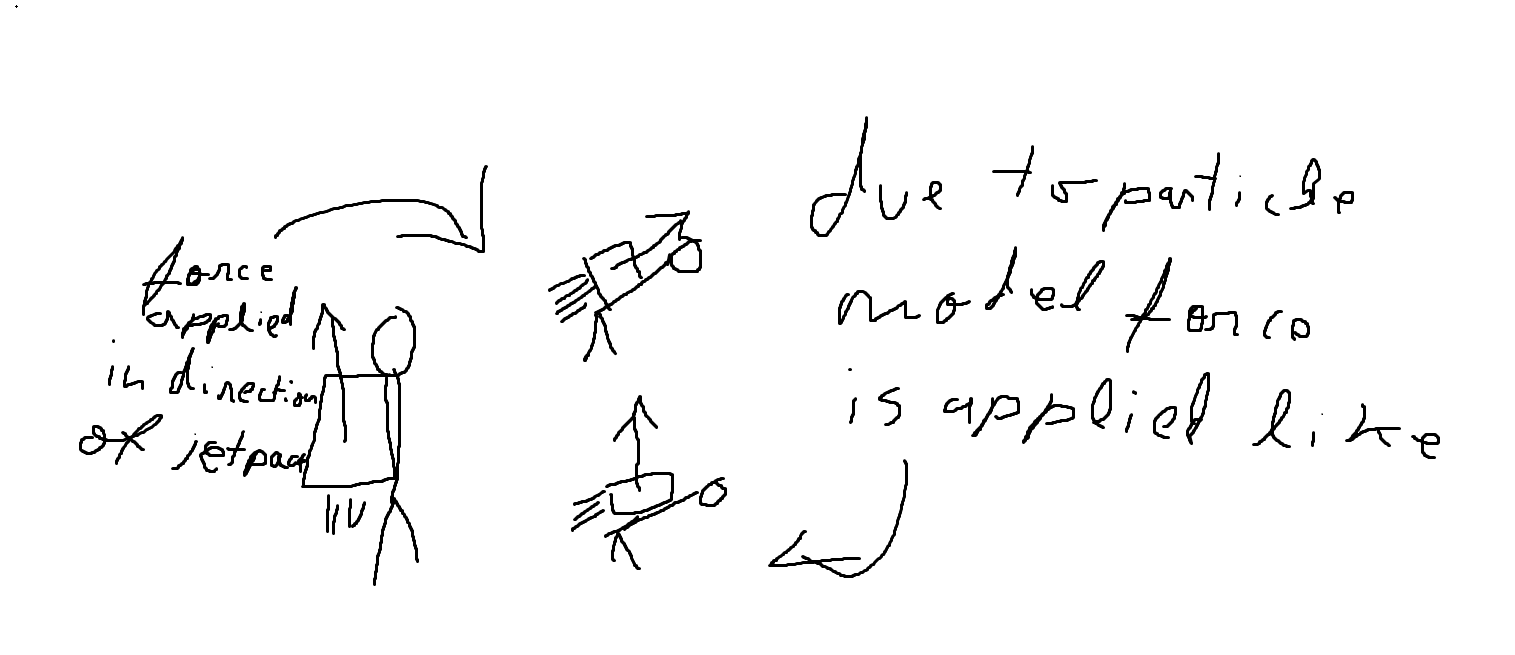 force
applied
in direction
of jetpack
due to particle
model force
is applied like